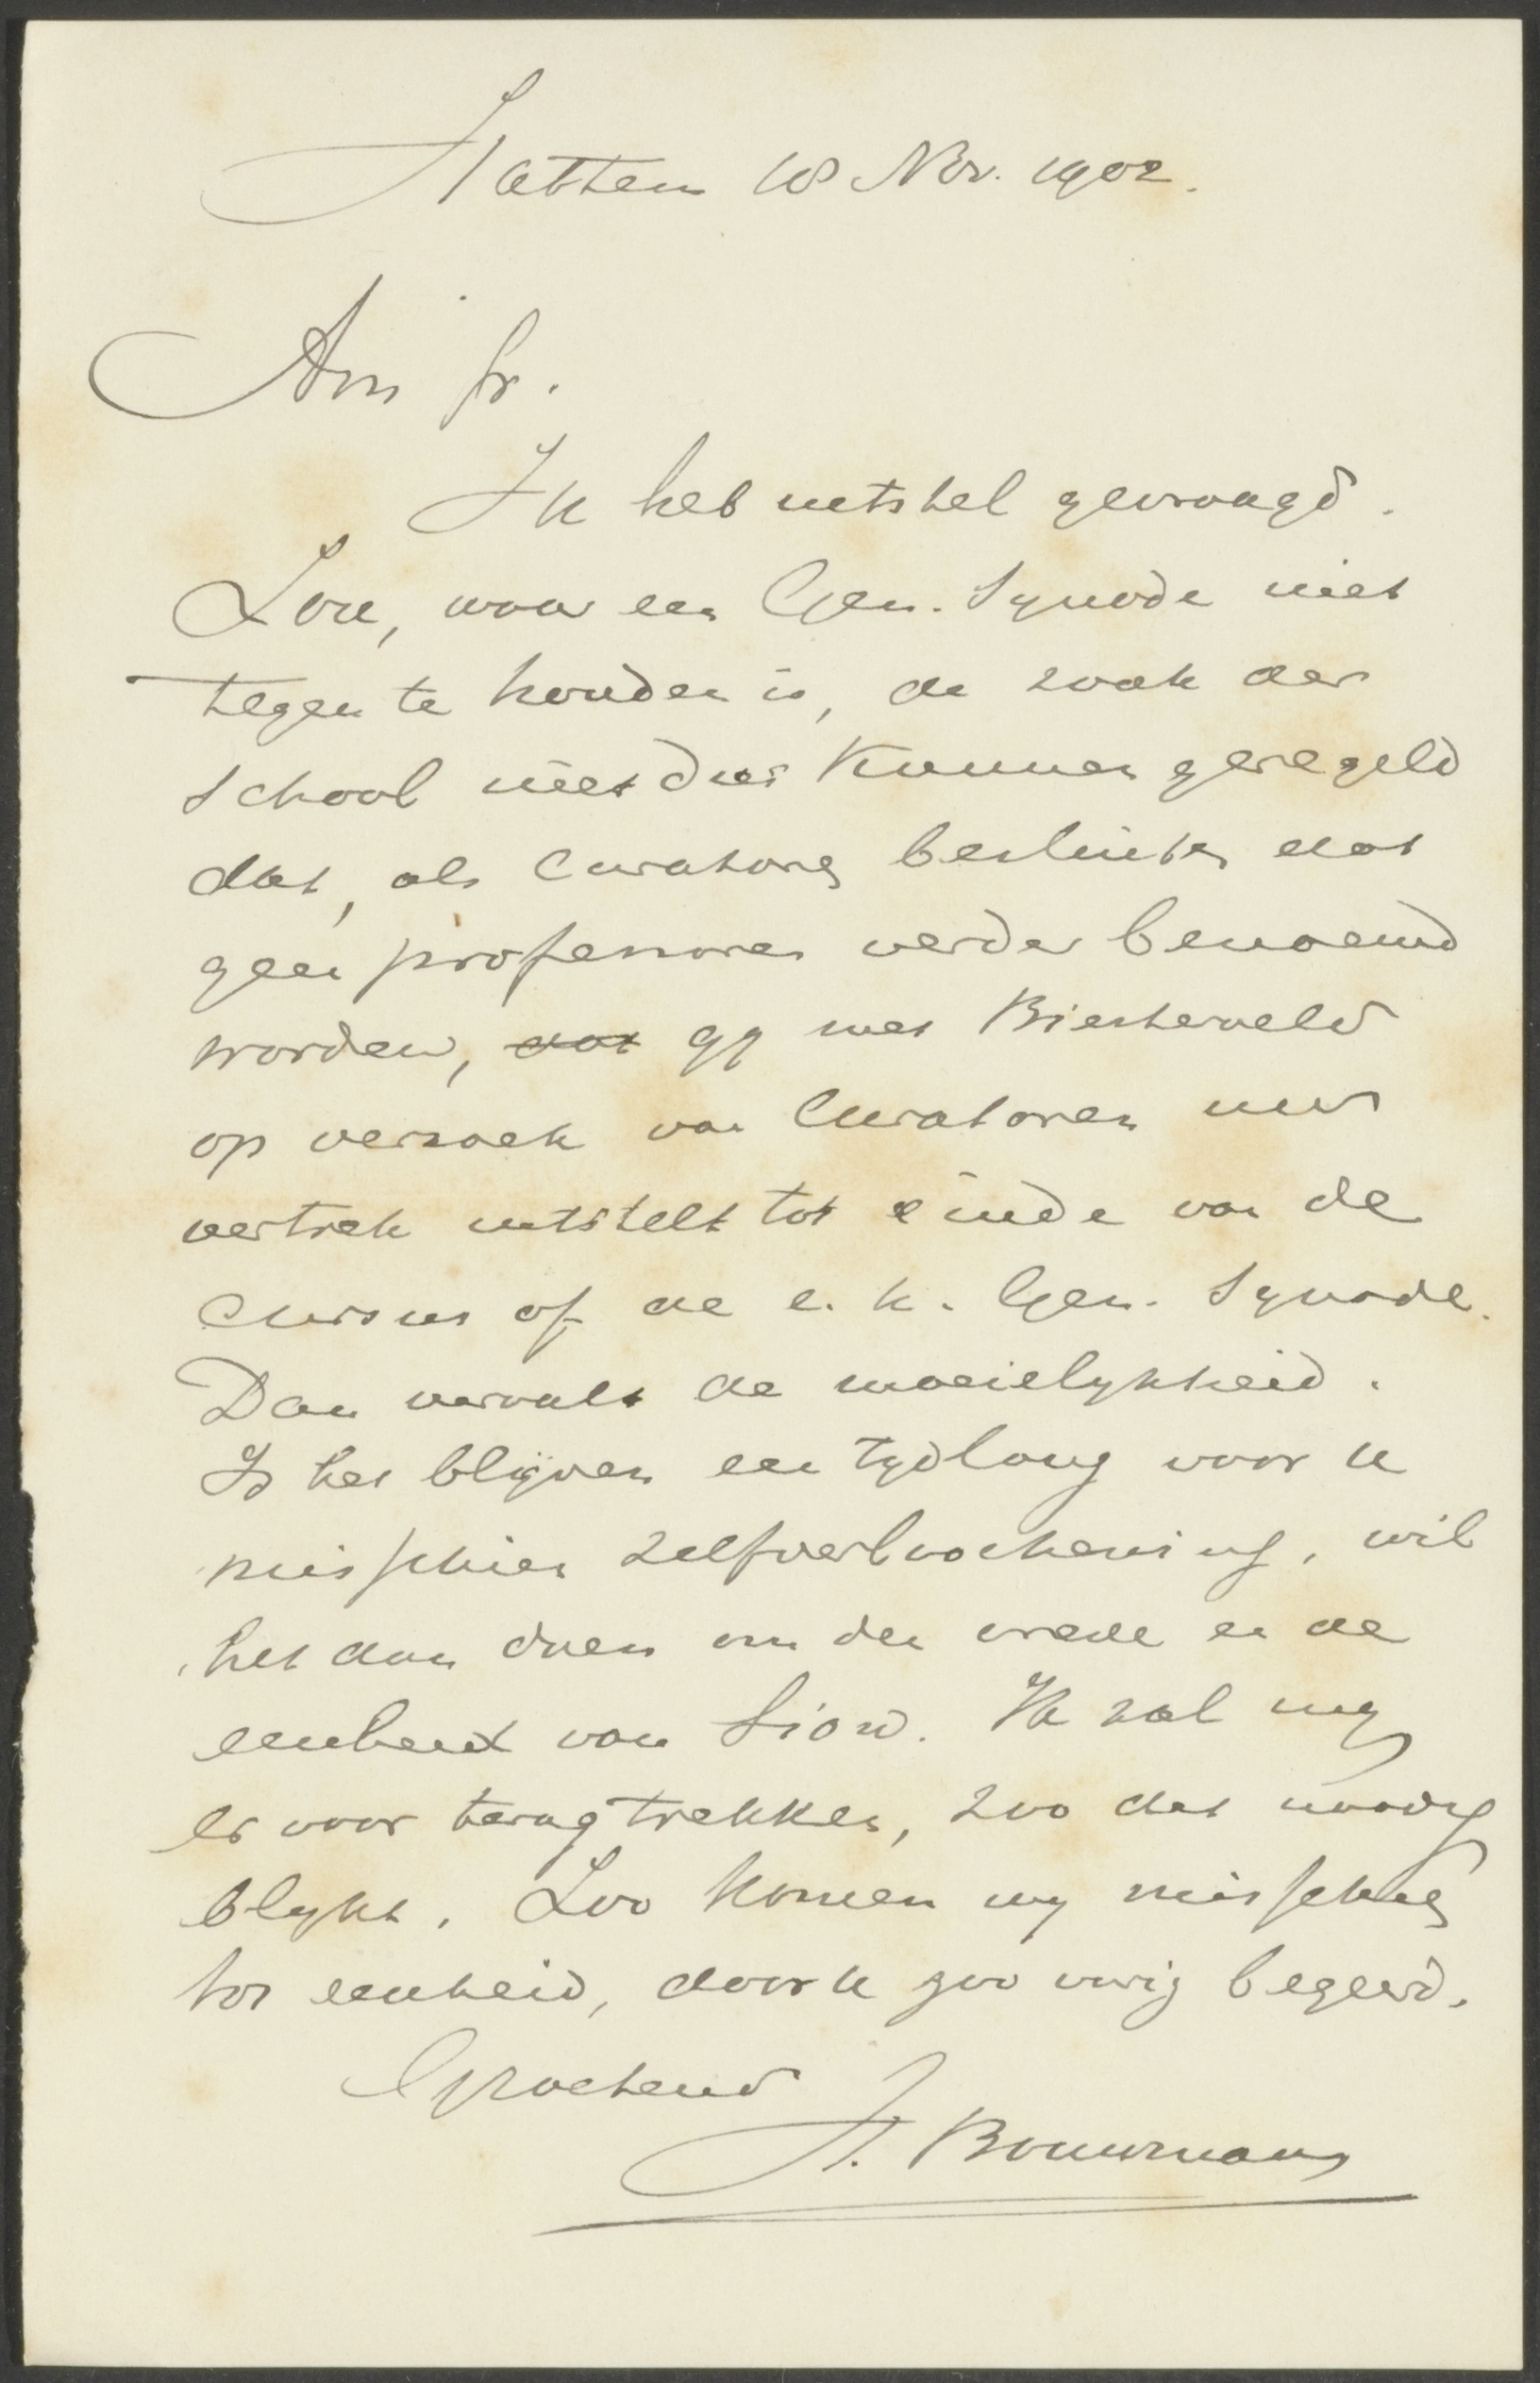 Hattem 18 Nov. 1902.
Am fr.
Ik heb uitstel gevraagd.
Zou, waar een Gen. Synode niet
tegen te houden is, de zaak der
School niet dus kunnen geregeld
dat, als Curatoren besluiten dat
geen professoren verder benoemd
worden, dat gij met Biesterveld
op verzoek van Curatoren uw
vertrek uitstelt tot einde van de
Cursus of de e. k. Gen. Synode.
Dan vervalt de moeielijkheid.
Is het blijven een tijdlang voor u
misschien zelfverloochening, wil
het dan doen om den vrede en de
eenheid van Sion. Ik zal mij
er voor terugtrekken, zoo dat noodig
blijkt. Zoo komen wij misschien
tot eenheid, door u zoo vurig begeerd.
Groetend
H. Bouwman